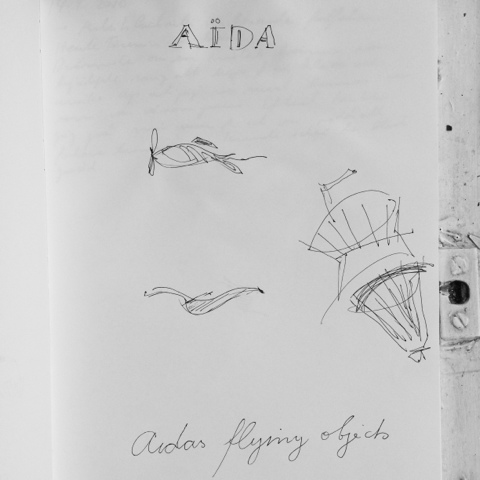 AÏDA
Aidas flying objects